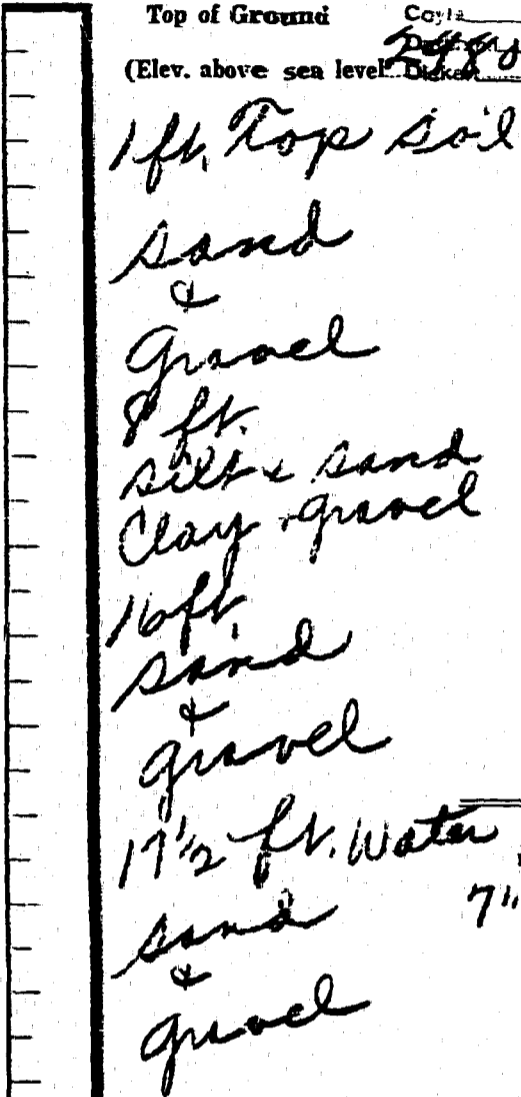 Top of Ground
(Elev. above sea level
1 ft. Top soil
sand
&
Gravel
8 ft.
silt & sand
Clay & gravel
16 ft.
sand
&
gravel
17 1/2 ft. Water
7"
sand
&
gravel